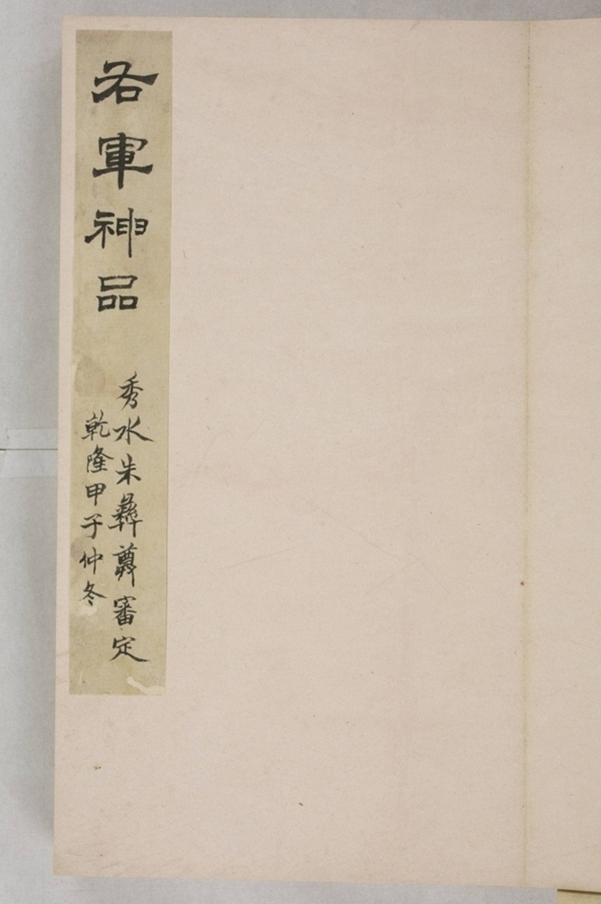 右軍神品
秀水朱彝尊審定
乾隆甲子仲冬